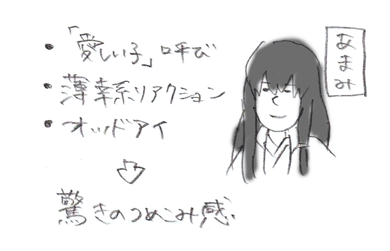 ・「愛しい子」呼び
・薄幸系リアクション
・オッドアイ
驚きのつめこみ感
あまみ